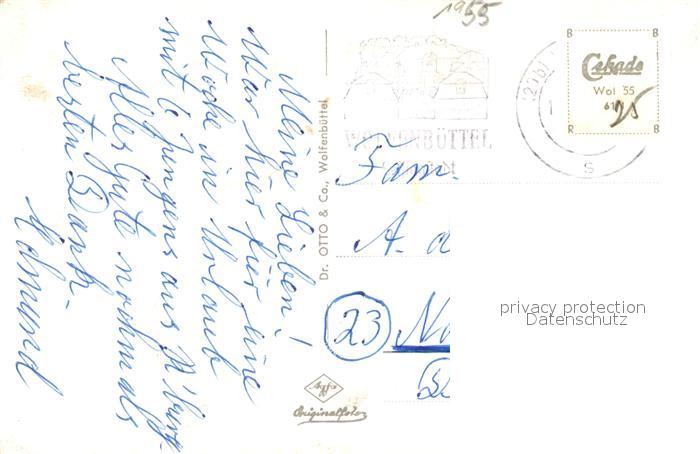 Meine Lieben!
War hier für eine
Woche in Urlaub
mit 6 Jungens aus N'burg.
Alles Gute nochmals
besten Dank.
Edmund
Dr. OTTO & Co., Wolfenbüttel
Agfa
Originalfoto
1955
WOLFENBÜTTEL
B B
Cekade
Wol 55
R B
25
S
Fam.
A. d
23 No
privacy protection
Datenschutz